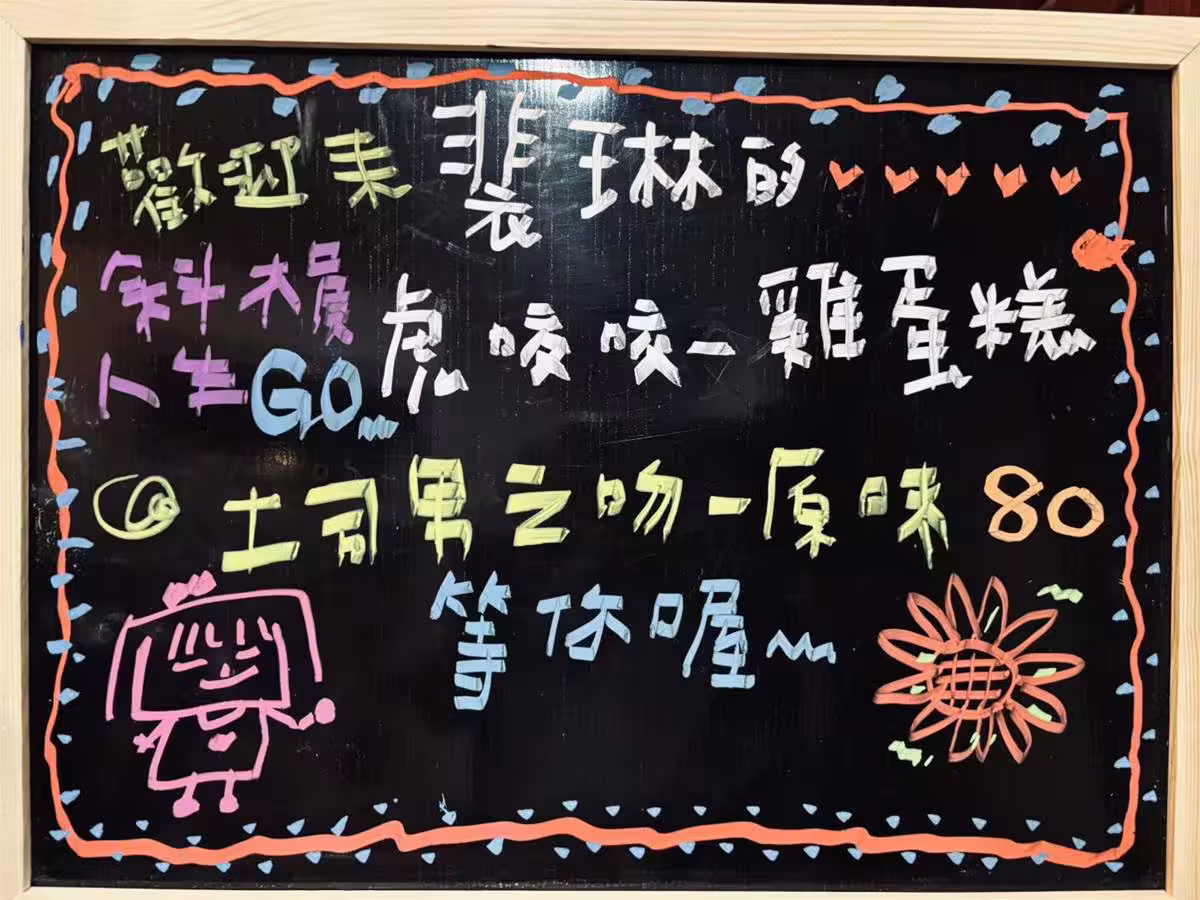 歡迎來裴琳的
斜槓
人生GO...
虎咬咬-雞蛋糕
@土司男之吻-原味80
等你喔~